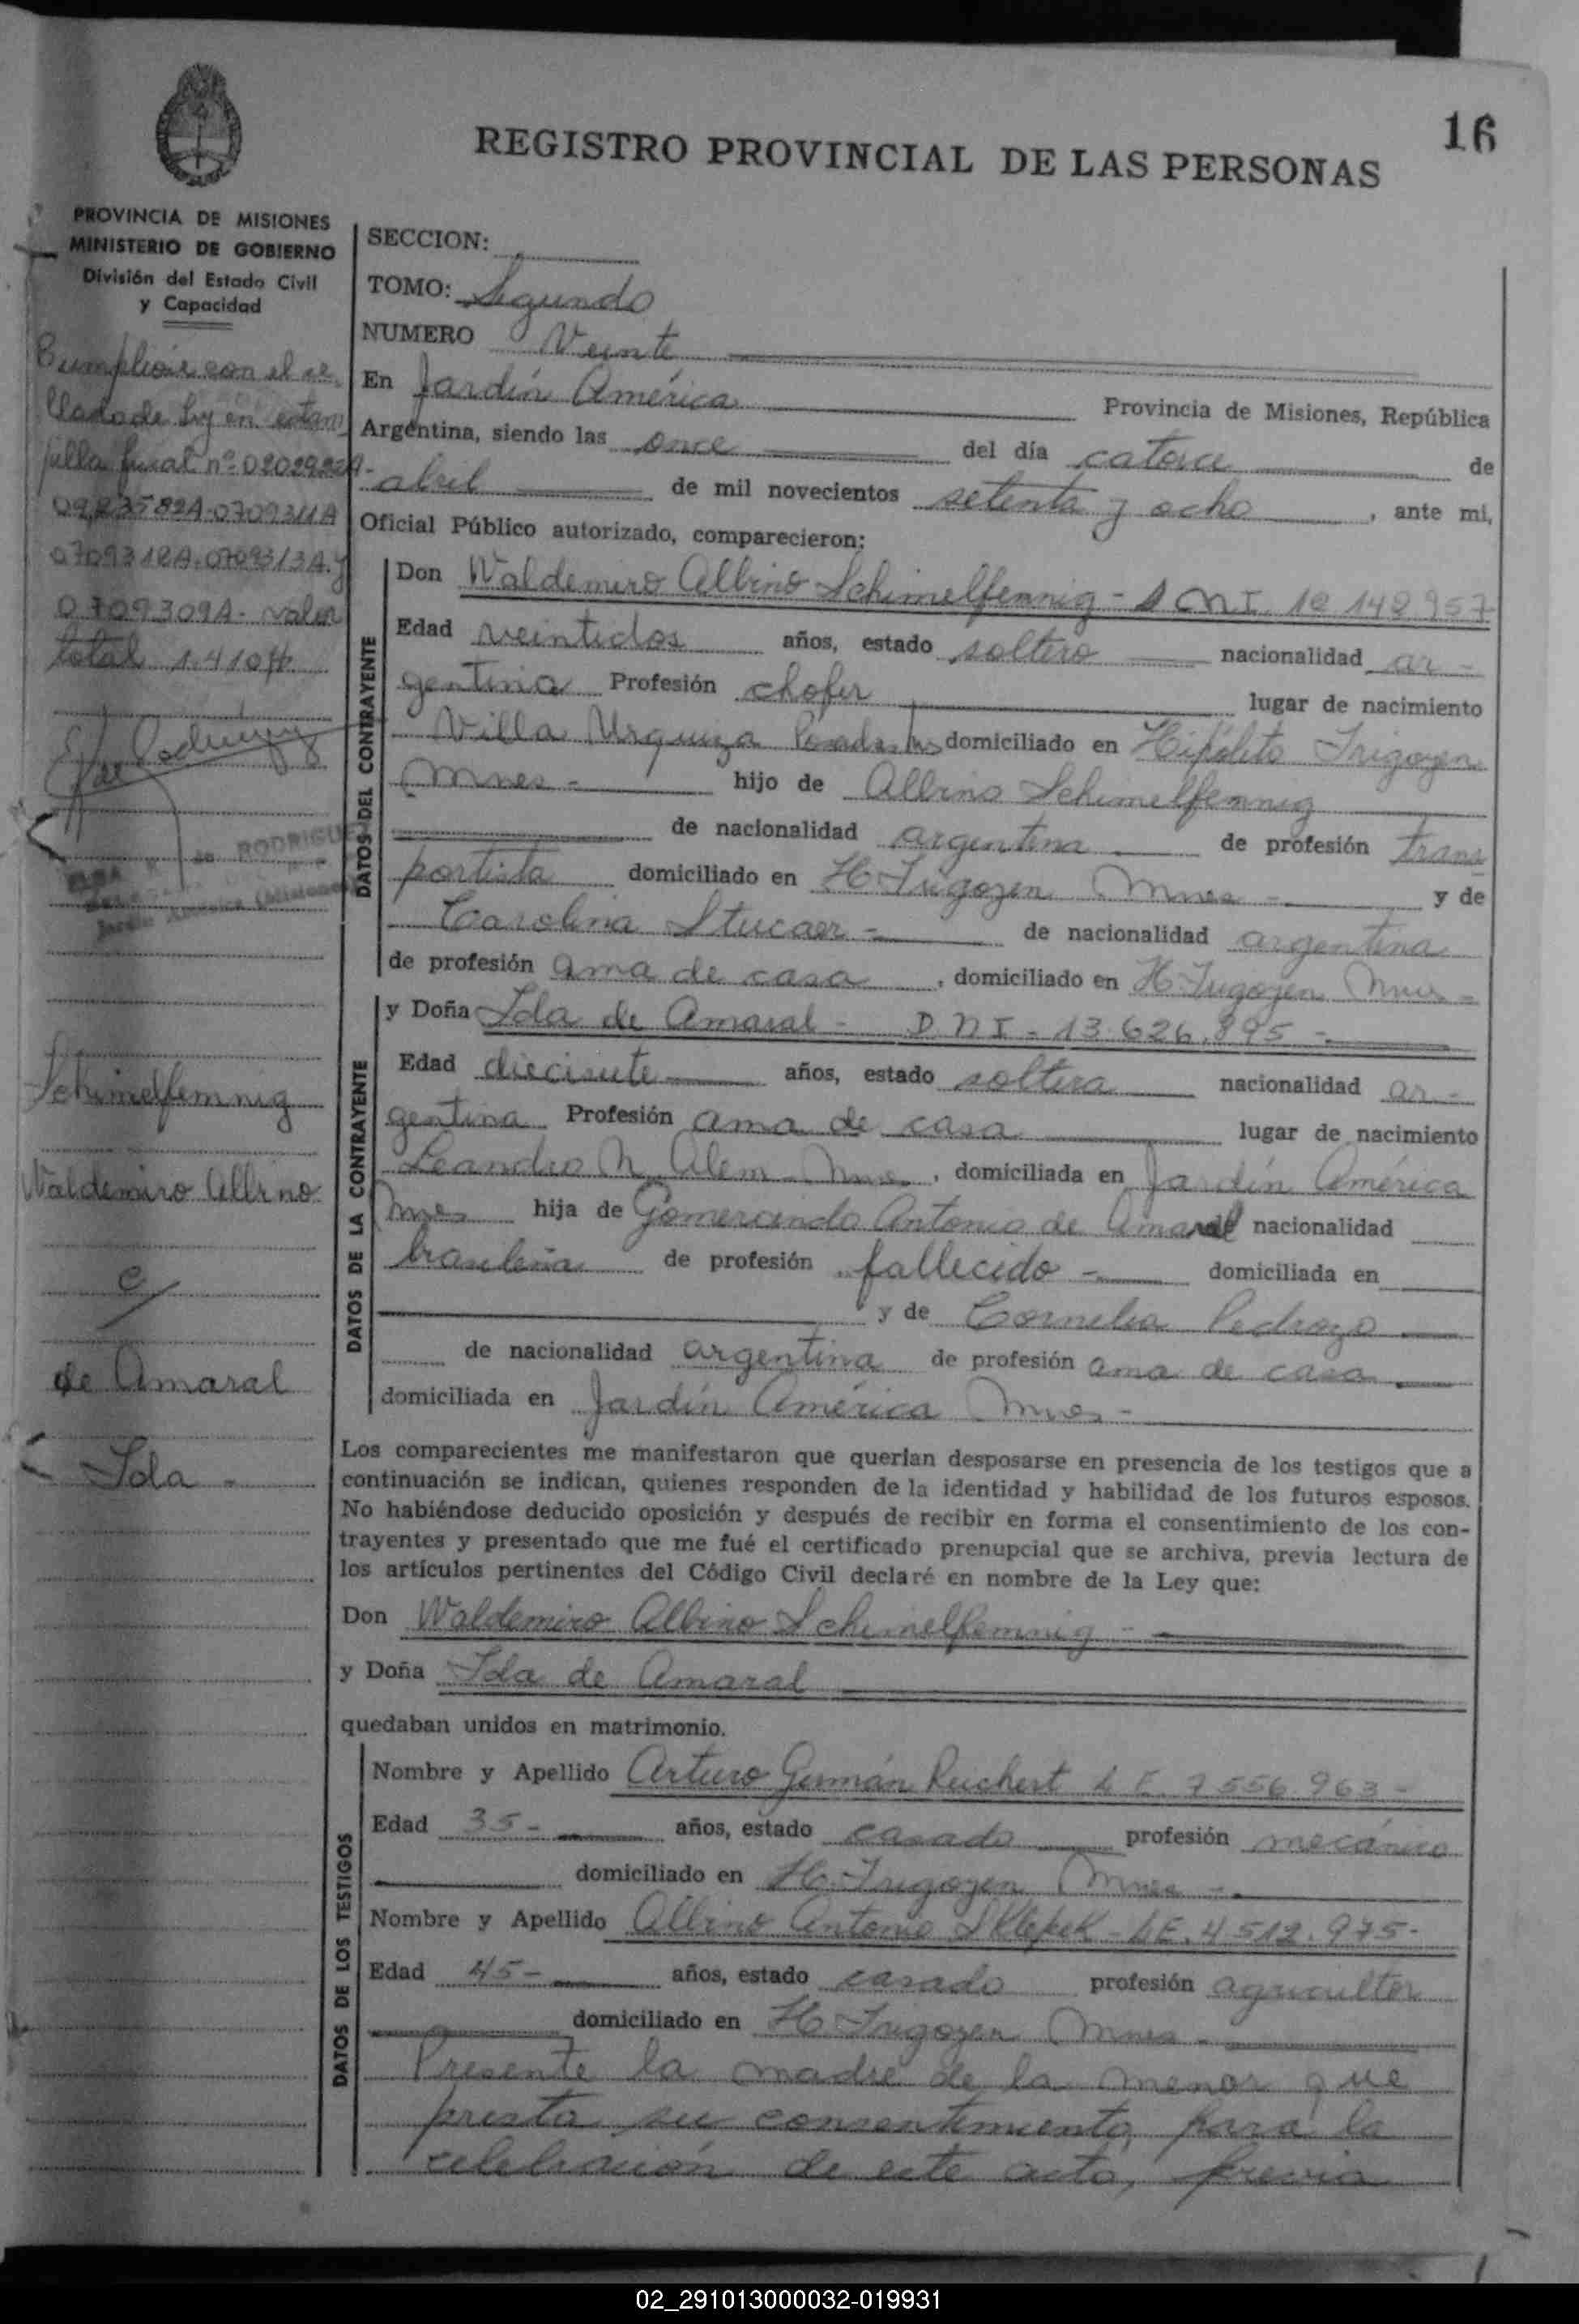 16
REGISTRO PROVINCIAL DE LAS PERSONAS
PROVINCIA DE MISIONES
MINISTERIO DE GOBIERNO
División del Estado Civil
y Capacidad
Cumplióse con el se
llado de ley en estam
pilla fiscal nº
0709311A
0709312A-0709313A. y
0709309A- valor
total 1.410
RODRIGUEZ
Schimelfemnig
Waldemiro Albino
c/
de Amaral
Ida -
SECCION:
TOMO: Segundo
NUMERO Veinte
En Jardín América Provincia de Misiones, República
Argentina, siendo las once del día catorce de
abril de mil novecientos setenta y ocho, ante mi,
Oficial Público autorizado, comparecieron:
DATOS DEL CONTRAYENTE
Don Waldemiro Albino Schimelfemnig - D N I. 12 149 957
Edad veintidos años, estado soltero nacionalidad ar-
gentina Profesión chofer lugar de nacimiento
Villa Urquiza Posadas Mns domiciliado en Hipólito Irigoyen
Mnes - hijo de Albino Schimelfemnig
de nacionalidad argentina de profesión trans
portista domiciliado en H. Irigoyen Mnes - y de
Carolina Stucaer - de nacionalidad argentina
de profesión ama de casa, domiciliado en H. Irigoyen Mnes -
DATOS DE LA CONTRAYENTE
y Doña Ida de Amaral - D N I - 13.626.895 -
Edad diecisiete años, estado soltera nacionalidad ar-
gentina Profesión ama de casa lugar de nacimiento
Leandro N. Alem - Mnes, domiciliada en Jardín América
Mnes hija de Gomercindo Antonio de Amaral nacionalidad
brasileña de profesión fallecido - domiciliada en
y de Cornelia Pedrozo
de nacionalidad argentina de profesión ama de casa
domiciliada en Jardín América Mnes -
Los comparecientes me manifestaron que querían desposarse en presencia de los testigos que a
continuación se indican, quienes responden de la identidad y habilidad de los futuros esposos.
No habiéndose deducido oposición y después de recibir en forma el consentimiento de los con-
trayentes y presentado que me fué el certificado prenupcial que se archiva, previa lectura de
los artículos pertinentes del Código Civil declaré en nombre de la Ley que:
Don Waldemiro Albino Schimelfemnig -
y Doña Ida de Amaral
quedaban unidos en matrimonio.
DATOS DE LOS TESTIGOS
Nombre y Apellido Arturo Germán Reichert L E. 7 556 963 -
Edad 35 - años, estado casado profesión mecánico
domiciliado en H. Irigoyen Mnes -
Nombre y Apellido Albino Antonio Sklepek - L E. 4 512.975 -
Edad 45 - años, estado casado profesión agricultor
domiciliado en H. Irigoyen Mnes -
Presente la madre de la menor que
presta su consentimiento para la
celebración de este acto, previa
02_291013000032-019931